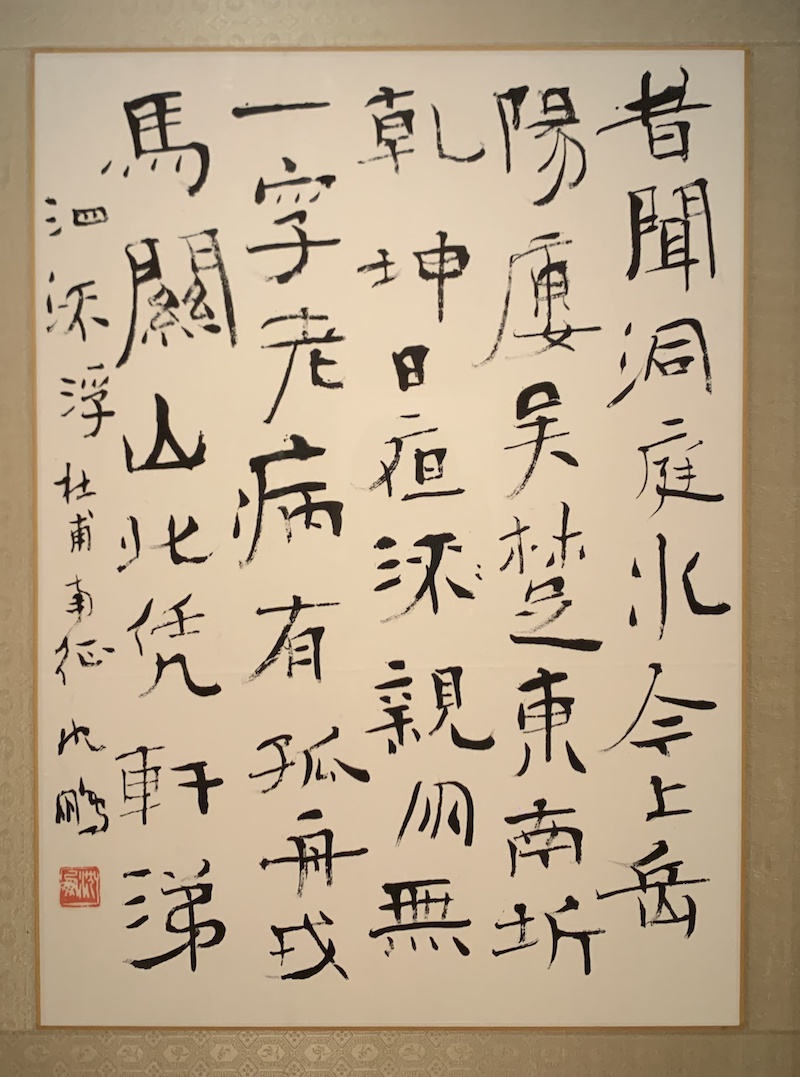 昔聞洞庭水今上岳
陽廔吴楚東南坼
乾坤日夜流親朋無
一字老病有孤舟戎
馬關山北凭軒涕
泗流浮杜甫南征沈鵬